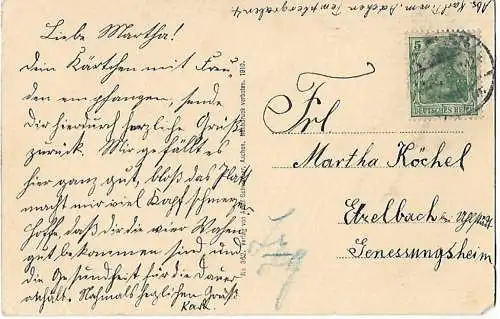 Abs. Karl Aachen Templergraben 4.
Liebe Martha!
Dein Kärtchen mit Freu-
den empfangen, sende
Dir hierdurch herzliche Grüße
zurück. Mir gefällt es
hier ganz gut, bloß das Platt
macht mir viel Kopfschmerz.
Hoffe, daß dir die vier Wochen
gut bekommen sind und
die Gesundheit für die Dauer
anhält. Nochmals herzlichen Gruß
Karl.
Verlag von Aachen. Nachdruck verboten. 1910.
5
DEUTSCHES REICH
Frl.
Martha Köchel
Etzelbach
Genessungsheim